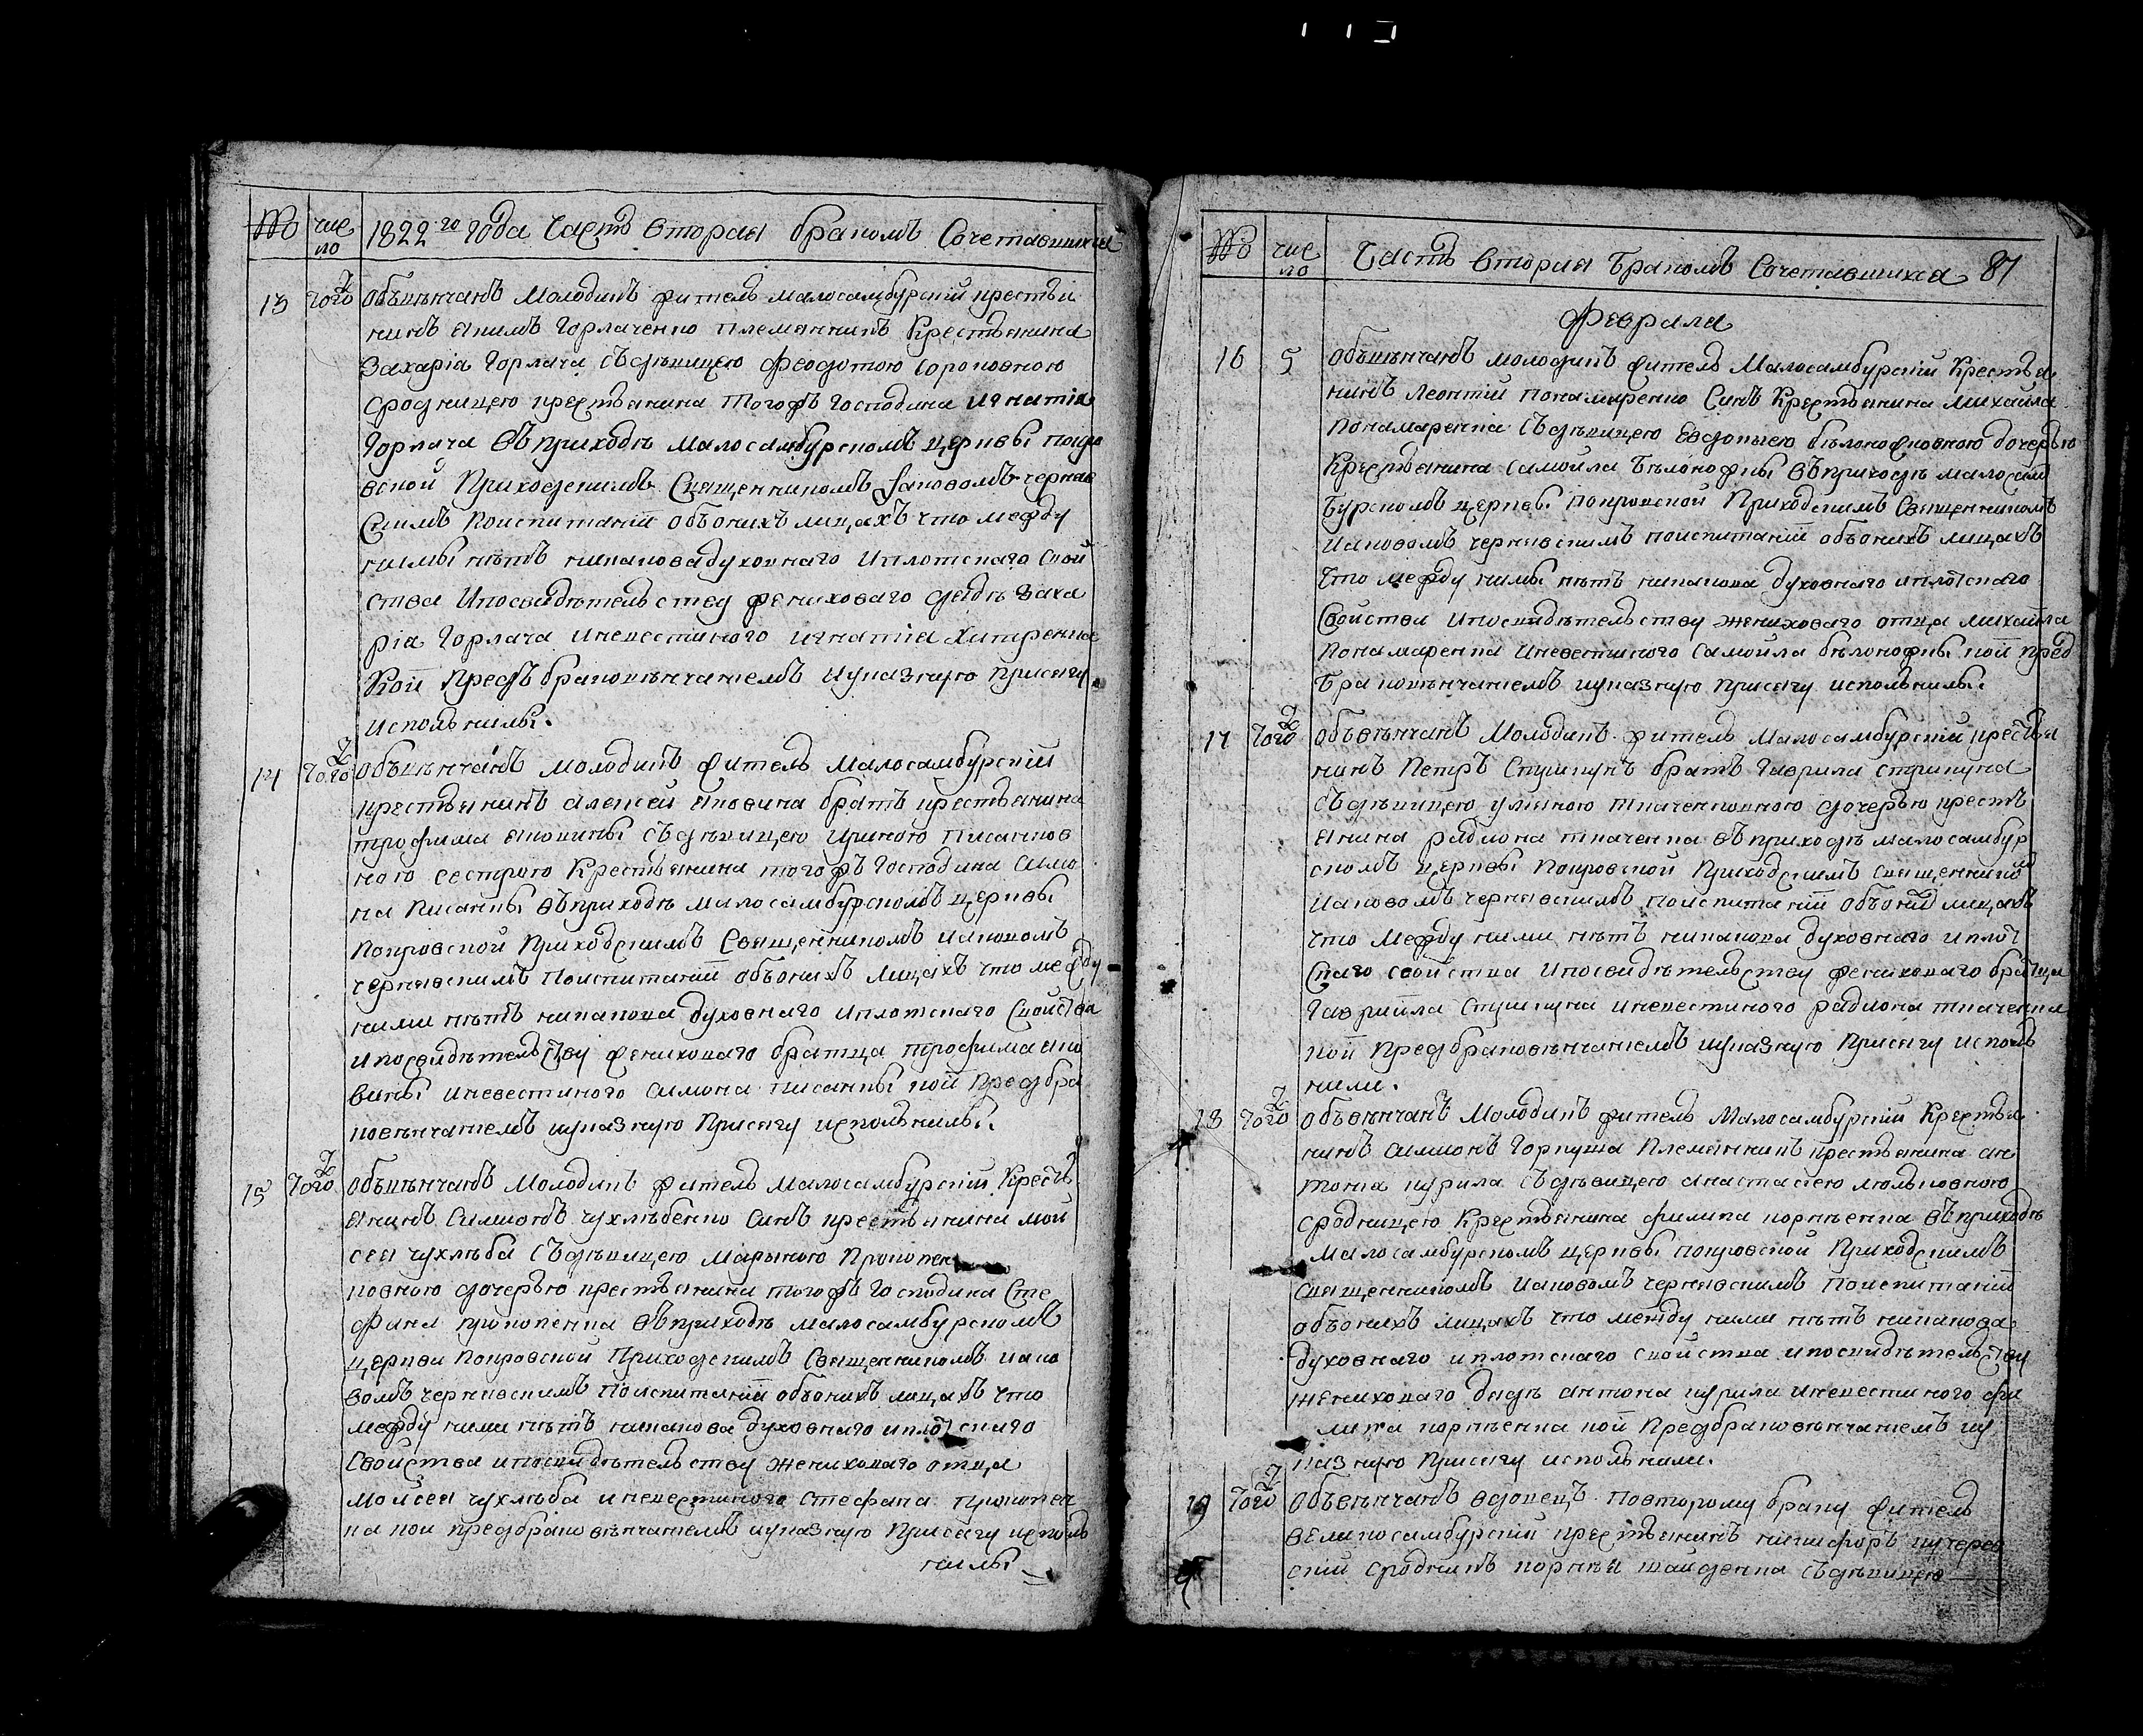 № число 1822го года Часть вторая бракомъ Сочетавшихся
13 Тогож Объвѣнчанъ молодикъ житель малосамбурскій крестья
нинъ Якимъ Горлаченко племянникъ крестьянина
Захаріа Горлача съдѣвицею Феодотою Сороковною
сродницею крестьянина тогожъ господина Игнатія
Горлача въприходѣ малосамбурскомъ церквы покро
вской Приходскимъ Священникомъ Іаковомъ Чернав
скимъ Поиспитаніи объонихъ лицахъ что между
нимы нѣтъ никакова духовнаго Иплотскаго Свой
ства Ипосвидѣтелъству жениховаго дядѣ Заха
ріа Горлача Иневестиного Игнатіа Хитренка
Кои Предъ браковѣнчаніемъ Иуказную Присягу
исполънилы.
14 Тогож Объвѣнчанъ молодикъ житель Малосамбурскій
крестьянинъ Алексей Яковина братъ крестьянина
трофима Яковины съдѣвицею Ириною Писанков
ною сестрою Крестьянина тогожъ Господина Симо
на Писанкы въприходѣ малосамбурскомъ церквы
покровской Приходскимъ Священникомъ Иаковомъ
чернявскимъ Поиспитаніи объонихъ лицахъ что между
ними нѣтъ никакова духовнаго Иплотскаго Свойства
ипосвидѣтельству жениховаго братца трофима Яко
вины Иневестиного Симона Писанкы кои Предбра
ковѣнчаніемъ иуказную Присягу исполънилы.
15 Тогож Объвѣнчанъ Молодикъ житель Малосамбурскій Кресть
янинъ Симионъ Чухлѣбенко Синъ крестьянина мой
сея чухлѣба съдѣвицею Марыною Прокопен
ковною дочерью крестьянина тогожъ Господина Сте
фана прокопенка въприходѣ малосамбурскомъ
церкви Покровской Приходскимъ Священникомъ иако
вомъ чернявскимъ Поиспитаніи объонихъ лицахъ что
между ними нѣтъ никакова духовнаго иплотскаго
Свойства ипосвидѣтельству жениховаго отца
Мойсея чухлѣба иневестиного стефана прокопен
ка кои предбраковѣнчаніемъ иуказную Присягу исполъ
нилы
№ число Часть вторая Бракомъ Сочетавшихся 87
Февраля
16 5 Объвѣнчанъ молодикъ житель Малосамбурскій Крестья
нинъ Леонтій Понамаренко Синъ Крестьянина Михайла
Понамаренка Съдѣвицею Евдокиею бѣлоножковною дочерью
Крестьянина Самойла Бѣлоножкы въприходѣ малосам
бурскомъ церквы Покровской Приходскимъ Священникомъ
Иаковомъ чернявскимъ поиспитаніи объонихъ лицахъ
что между нимы нѣтъ никакова духовнаго иплотскаго
Свойства Ипосвидѣтельству жениховаго отца михайла
Понамаренка Иневестиного Самойла бѣлоножкы кои пред
браковѣнчаніемъ иуказную Присягу исполънилы.
17 Тогож Объвѣнчанъ Молодикъ житель Малосамбурскій кресть я
нинъ Петръ Стрикунъ братъ Гаврила стрикуна
съдѣвицею улияною ткаченковною дочерью кресть
янина радиона ткаченка въприходѣ малосамбур
скомъ церквы Покровской Приходскимъ священнико
Иаковомъ чернявскимъ поиспитаніи объонихъ лицахъ
что Между ними нѣтъ никакова духовнаго иплот
скаго свойства Ипосвидѣтельству жениховаго братца
Гаврийла Стрикуна иневестиного радиона ткаченка
кои Предбраковѣнчаніемъ иуказную Присягу исполъ
нили.
18 Тогож Объвѣнчанъ Молодикъ житель Малосамбурскій Крестья
нинъ Симионъ Горкуша Племянникъ крестьянина ан
тона курила съдѣвицею Анастасіею
сродницею Крестьянина филипа корнѣенка въприходѣ
малосамбурскомъ церквы покровской Приходскимъ
священникомъ Иаковомъ чернявскимъ Поиспитаніи
объонихъ лицахъ что между ними нѣтъ никакова
духовнаго иплотскаго свойства ипосвидѣтельству
жениховаго дядѣ антона курила иневестиного фи
липа корнѣенка кои Предбраковѣнчаніемъ иу
казную Присягу исполънили.
19 Тогож Объвѣнчанъ вдовецъ повторому браку житель
великосамбурскій крестьянинъ никифоръ кучеров
скій сродникъ корнѣя шайденка съдѣвицею